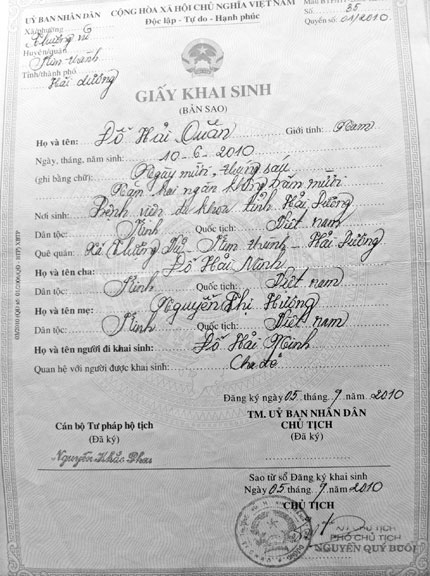 ỦY BAN NHÂN DÂN
CỘNG HÒA XÃ HỘI CHỦ NGHĨA VIỆT NAM
Độc lập - Tự do - Hạnh phúc
Xã/phường:
Thượng vũ
Huyện/quận:
Kim thành
Tỉnh/thành phố
Hải dương
Số 35
Quyển số: 01/2010
GIẤY KHAI SINH
(BẢN SAO)
Họ và tên: Đỗ Hải Quân Giới tính: Nam
Ngày, tháng, năm sinh: 10-6-2010
(ghi bằng chữ): Ngày mười, tháng sáu
Năm hai ngàn không trăm mười
Nơi sinh: Bệnh viện đa khoa tỉnh Hải Dương
Dân tộc: Kinh Quốc tịch: Việt nam
Quê quán: Xã Thượng Vũ - Kim thành - Hải Dương
Họ và tên cha: Đỗ Hải Ninh
Dân tộc: Kinh Quốc tịch: Việt nam
Họ và tên mẹ: Nguyễn Thị Hương
Dân tộc: Kinh Quốc tịch: Việt nam
Họ và tên người đi khai sinh: Đỗ Hải Ninh
Quan hệ với người được khai sinh: Cha đẻ
Đăng ký ngày 05 tháng 7 năm 2010
Cán bộ Tư pháp hộ tịch
(Đã ký)
Nguyễn Khắc
TM. UỶ BAN NHÂN DÂN
CHỦ TỊCH
(Đã ký)
Sao từ sổ Đăng ký khai sinh
Ngày 05 tháng 7 năm 2010
CHỦ TỊCH
KT CHỦ TỊCH
PHÓ CHỦ TỊCH
NGUYỄN QUÝ BUỔI